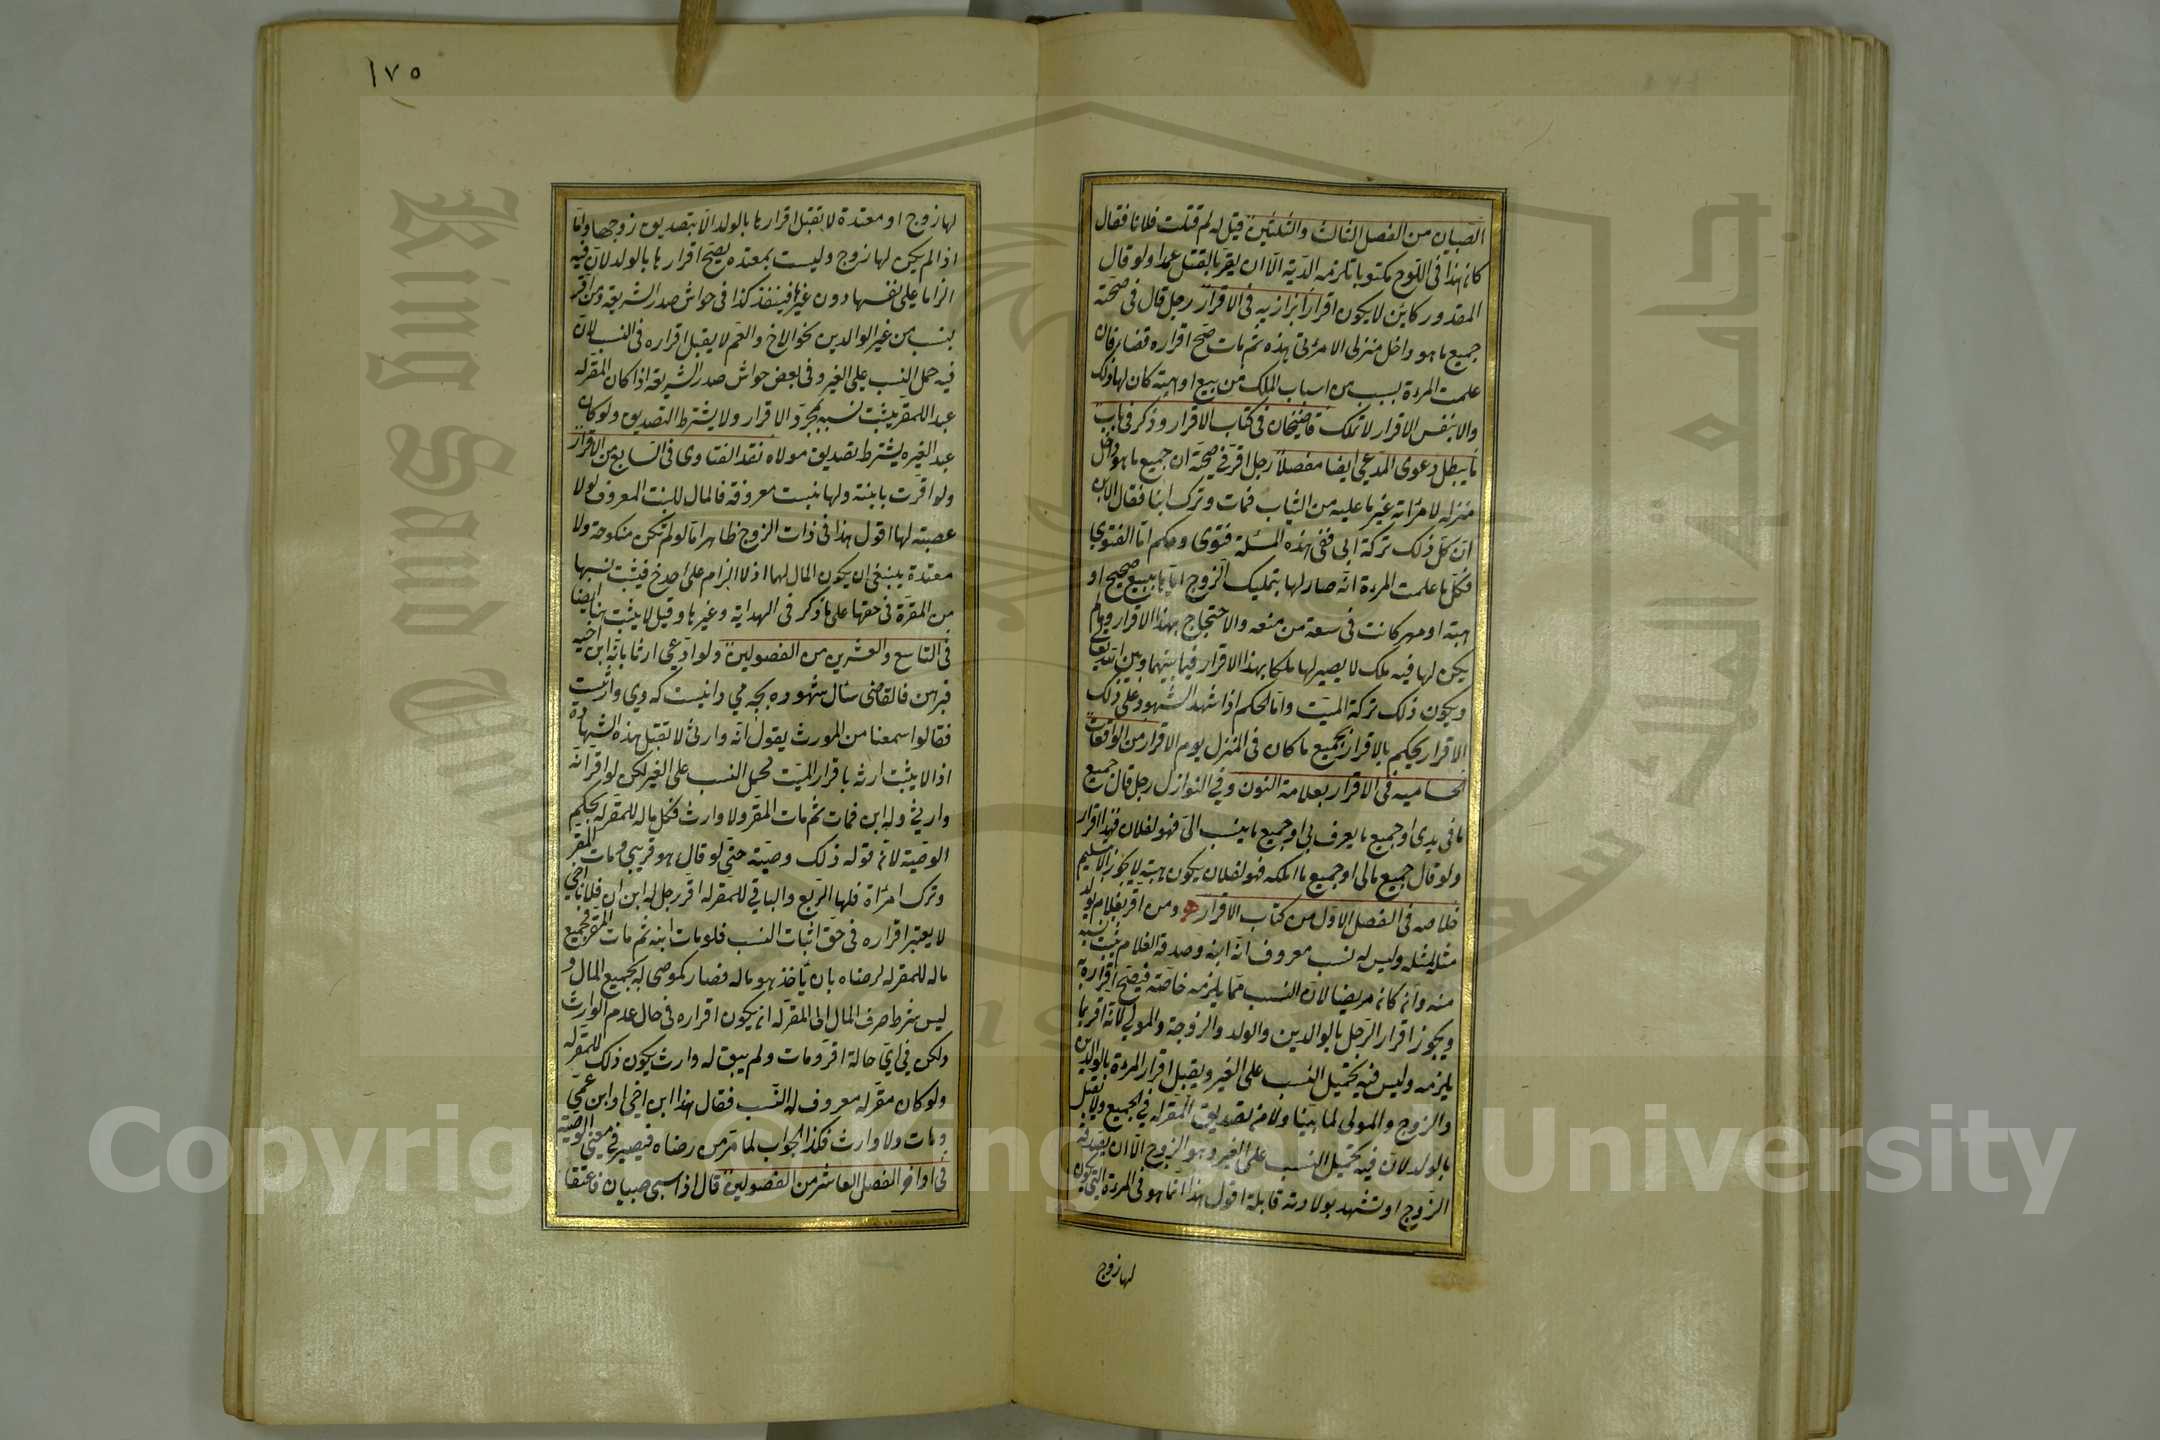 الصبيان من الفصل الثالث والثلثين قيل له لم قتلت فلانا فقال
كان هذا فى اللوح مكتوبا تلزمه الدية الا ان يقر بالقتل عمدا ولو قال
المقدور كاين لا يكون اقرارا بزازيه فى الاقرار رجل قال فى صحته
جميع ما هو داخل منزلى لامرئتى هذه ثم مات صح اقراره قضاء فان
علمت المرءة بسبب من اسباب الملك من بيع او هبة كان لها ذلك
والا بنفس الاقرار لا تملك قاضيخان فى كتاب الاقرار وذكر فى باب
ما يبطل دعوى المدعى ايضا مفصلا رجل اقر فى صحته ان جميع ما هو داخل
منزله لامرأته غير ما عليه من الثياب فمات وترك ابنا فقال الابن
ان كل ذلك تركة ابى ففى هذه المسئلة فتوى وحكم اما الفتوى
فكل ما علمت المرءة انه صار لها بتمليك الزوج اياها ببيع صحيح او
هبة او مهر كانت فى سعة من منعه والاحتجاج بهذا الاقرار وما لم
يكن لها فيه ملك لا يصير لها ملكا بهذا الاقرار فيما بينها وبين الله تعالى
ويكون ذلك تركة الميت واما الحكم اذا شهد الشهود على ذلك
الاقرار يحكم بالاقرار بجميع ما كان فى المنزل يوم الاقرار من الواقعات
الحساميه فى الاقرار بعلامة النون وفى النوازل رجل قال جميع
ما فى يدى او جميع ما يعرف بى او جميع ما ينسب الى فهو لفلان فهذا اقرار
ولو قال جميع مالى او جميع ما املكه فهو لفلان يكون هبة لا يجوز الا بتسليم
خلاصه فى الفصل الاول من كتاب الاقرار ومن اقر بغلام يولد
مثله لمثله وليس له نسب معروف انه ابنه وصدقه الغلام يثبت نسبه
منه وان كان مريضا لان النسب مما يلزمه خاصة فيصح اقراره به
ويجوز اقرار الرجل بالوالدين والولد والزوجة والمولى لانه اقر بما
يلزمه وليس فيه تحميل النسب على الغير ويقبل اقرار المرءة بالوالدين
والزوج والمولى لما بينا ولا من تصديق المقر له فى الجميع ولا يقبل
بالولد لان فيه تحميل النسب على الغير وهو الزوج الا ان يصدقه
الزوج او تشهد بولادته قابلة اقول هذا انما هو فى المرءة التى يكون
لها زوج
١٧٥
لها زوج او معتدة لا يقبل اقرارها بالولد الا بتصديق زوجها واما
اذا لم يكن لها زوج وليست بمعتده يصح اقرارها بالولد لان فيه
الزاما على نفسها دون غيرها فينفذ كذا فى حواشى صدر الشريعة ومن اقر
بنسب من غير الوالدين نحو الاخ والعم لا يقبل اقراره فى النسب لان
فيه حمل النسب على الغير وفى بعض حواشى صدر الشريعة اذا كان المقر له
عبدا للمقر يثبت نسبه بمجرد الاقرار ولا يشترط التصديق ولو كان
عبدا لغيره يشترط تصديق مولاه نقد الفتاوى فى السابع من الاقرار
ولو اقرت بابنة ولها بنت معروفة فالمال للبنت المعروف لولا
عصبته لها اقول هذا فى ذات الزوج ظاهر اما لو لم تكن منكوحة ولا
معتدة ينبغى ان يكون المال لهما اذ لا الزام على احد خ فيثبت نسبها
من المقرة فى حقها على ما ذكر فى الهداية وغيرها وقيل لا يثبت هنا ايضا
فى التاسع والعشرين من الفصولين ولو ادعى ارثا بانه ابن اخيه
فبرهن فالقاضى سئال شهوده بچه مى دانيت كه وى وارثست
فقالوا سمعنا من المورث يقول انه وارثى لا تقبل هذه الشهادة
اذ لا يثبت ارثه باقرار الميت لحمل النسب على الغير لكن لو اقر انه
وارثى وله ابن فمات ثم مات المقر ولا وارث فكل ماله للمقر له بحكم
الوصية لانه قوله ذلك وصية حتى لو قال هو قريبى ومات المقر
وترك امرأة فلها الربع والباقى للمقر له اقر رجل له ابن ان فلانا اخى
لا يعتبر اقراره فى حق اثبات النسب فلو مات ابنه ثم مات المقر فجميع
ماله للمقر له لرضاه بان ياخذ هو ماله فصار كموصى له بجميع المال و
ليس شرط صرف المال الى المقر له ان يكون اقراره فى حال عدم الوارث
ولكن فى اى حالة اقر ومات ولم يبق له وارث يكون ذلك للمقر له
ولو كان مقر له معروف له النسب فقال هذا ابن اخى او ابن عمى
ومات ولا وارث فكذا الجواب لما مر من رضاه فيصير فى معنى الوصية
فى اواخر الفصل العاشر من الفصولين قال اذا سبى صبيان فاعتقا
King Saud University
جامعة الملك سعود
1957
Copyright © King Saud University